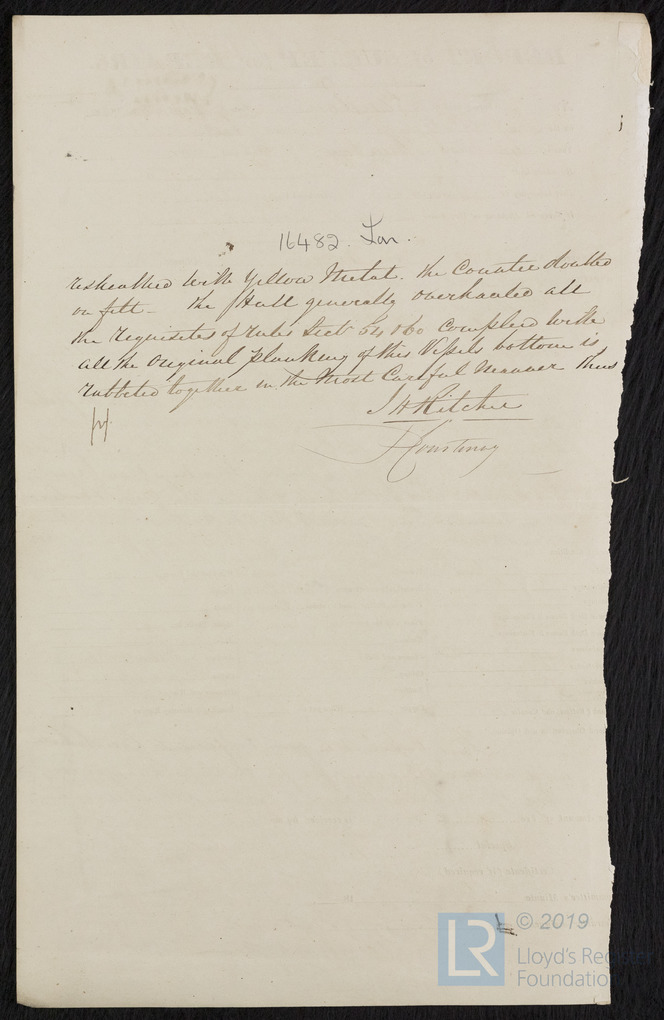 16482. Lon.
resheathed with Yellow Metal. the Counter doubled
on felt - the Hull generally overhauled all
the requisites of rules Sect 54 & 60 Complied with
all the Original planking of this Vessels bottom is
rabbeted together in the Most Careful Manner Thus
J H Ritchie
Courtenay
© 2019
LR
Lloyd's Register
Foundation